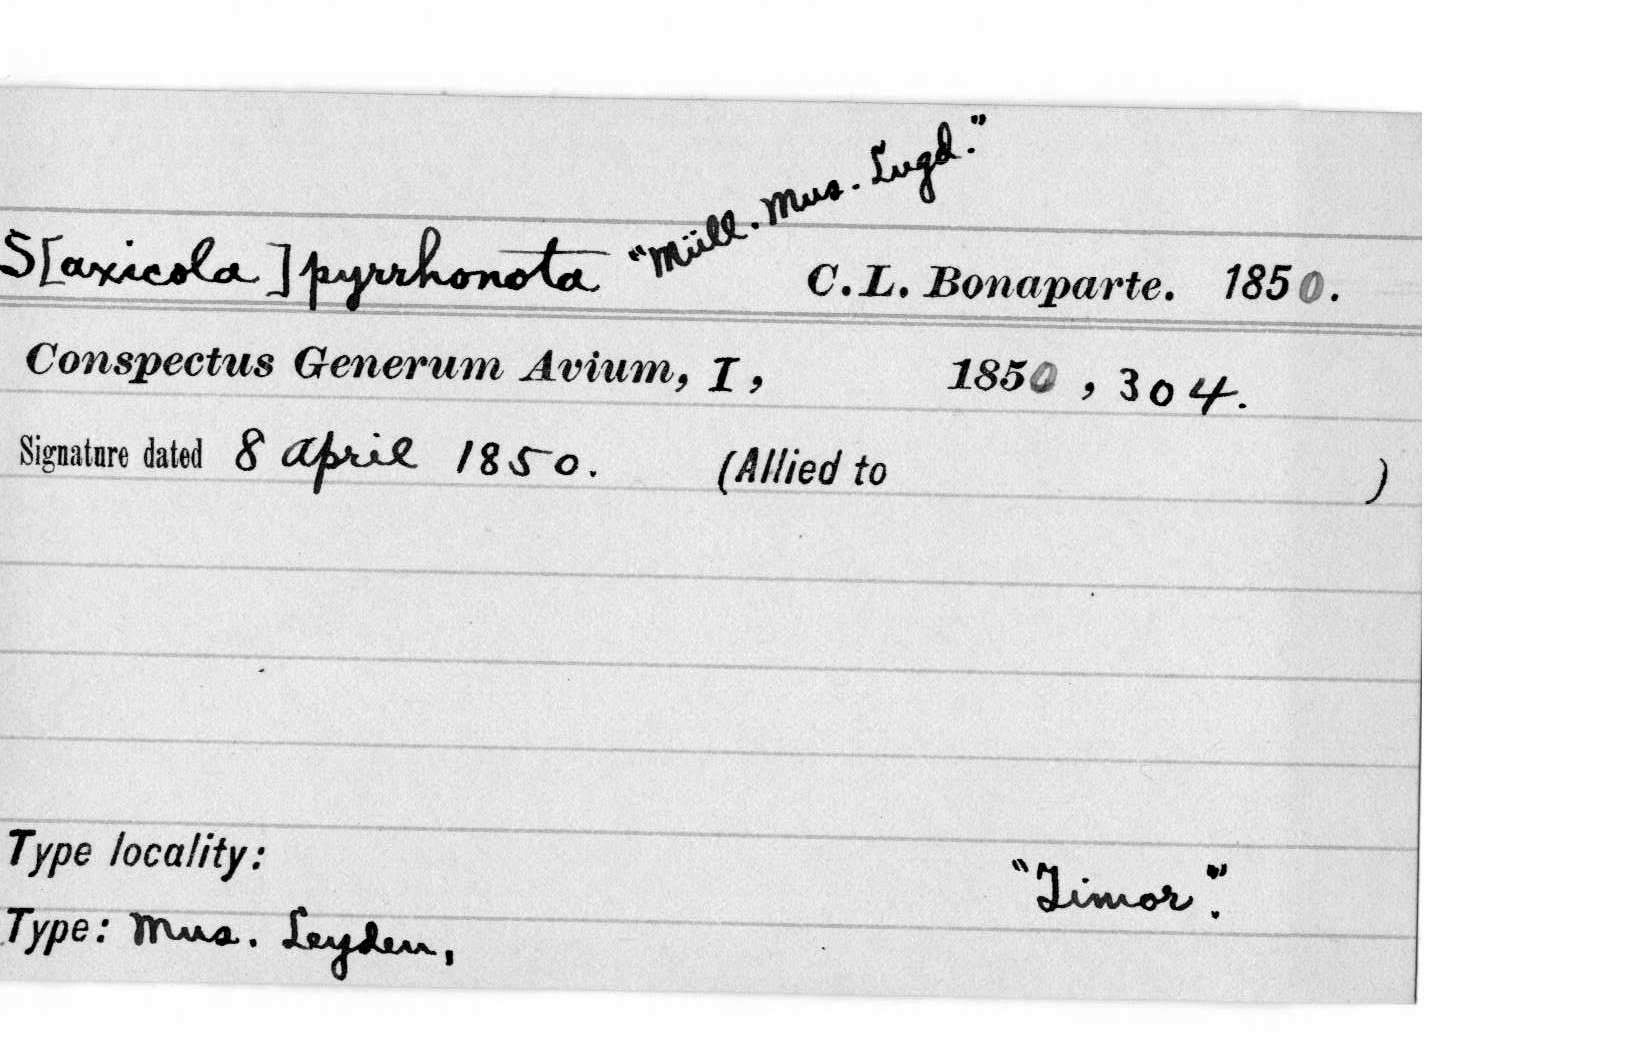 S[axicola] pyrrhonota "Müll. Mus. Lugd." C.L. Bonaparte. 1850.
Conspectus Generum Avium, I, 1850, 304.
Signature dated 8 April 1850. (Allied to )
Type locality: "Timor".
Type: Mus. Leyden,